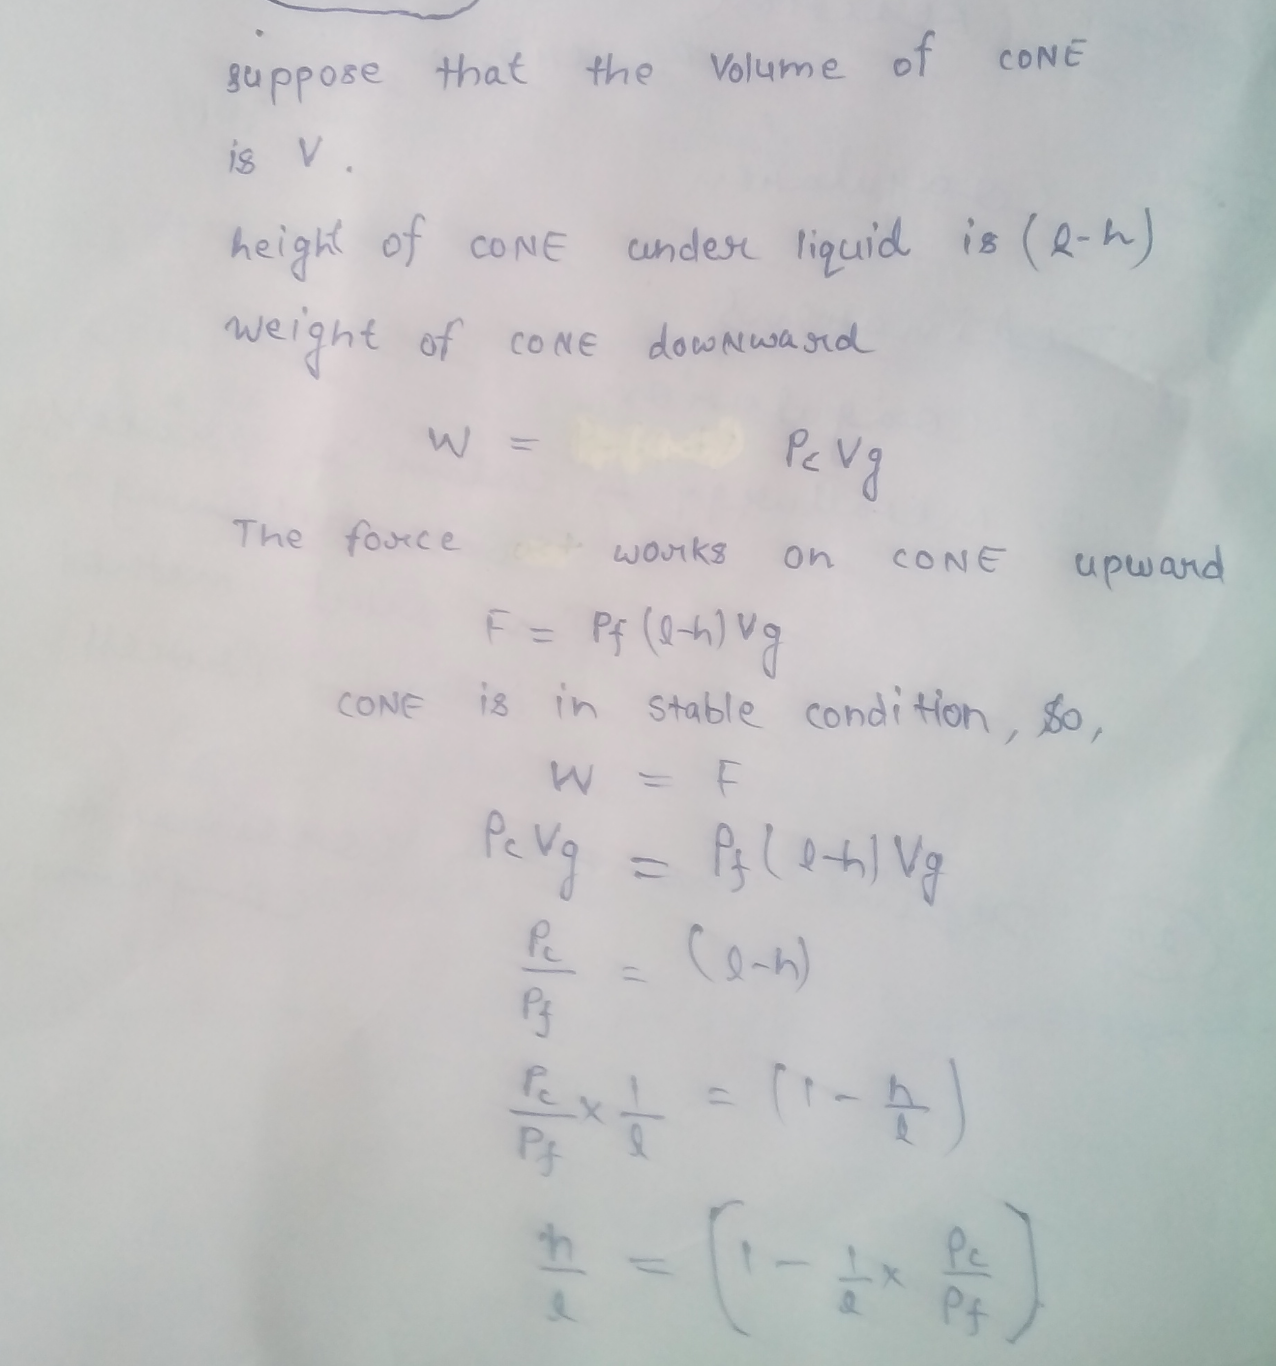 suppose that the Volume of CONE
is V.
height of CONE under liquid is (l-h)
weight of CONE downward
W = Pc Vg
The force works on CONE upward
F = Pf (l-h) Vg
CONE is in stable condition, So,
W = F
Pc Vg = Pf (l-h) Vg
Pc/Pf = (l-h)
Pc/Pf × 1/l = (1 - h/l)
h/l = (1 - 1/l × Pc/Pf)